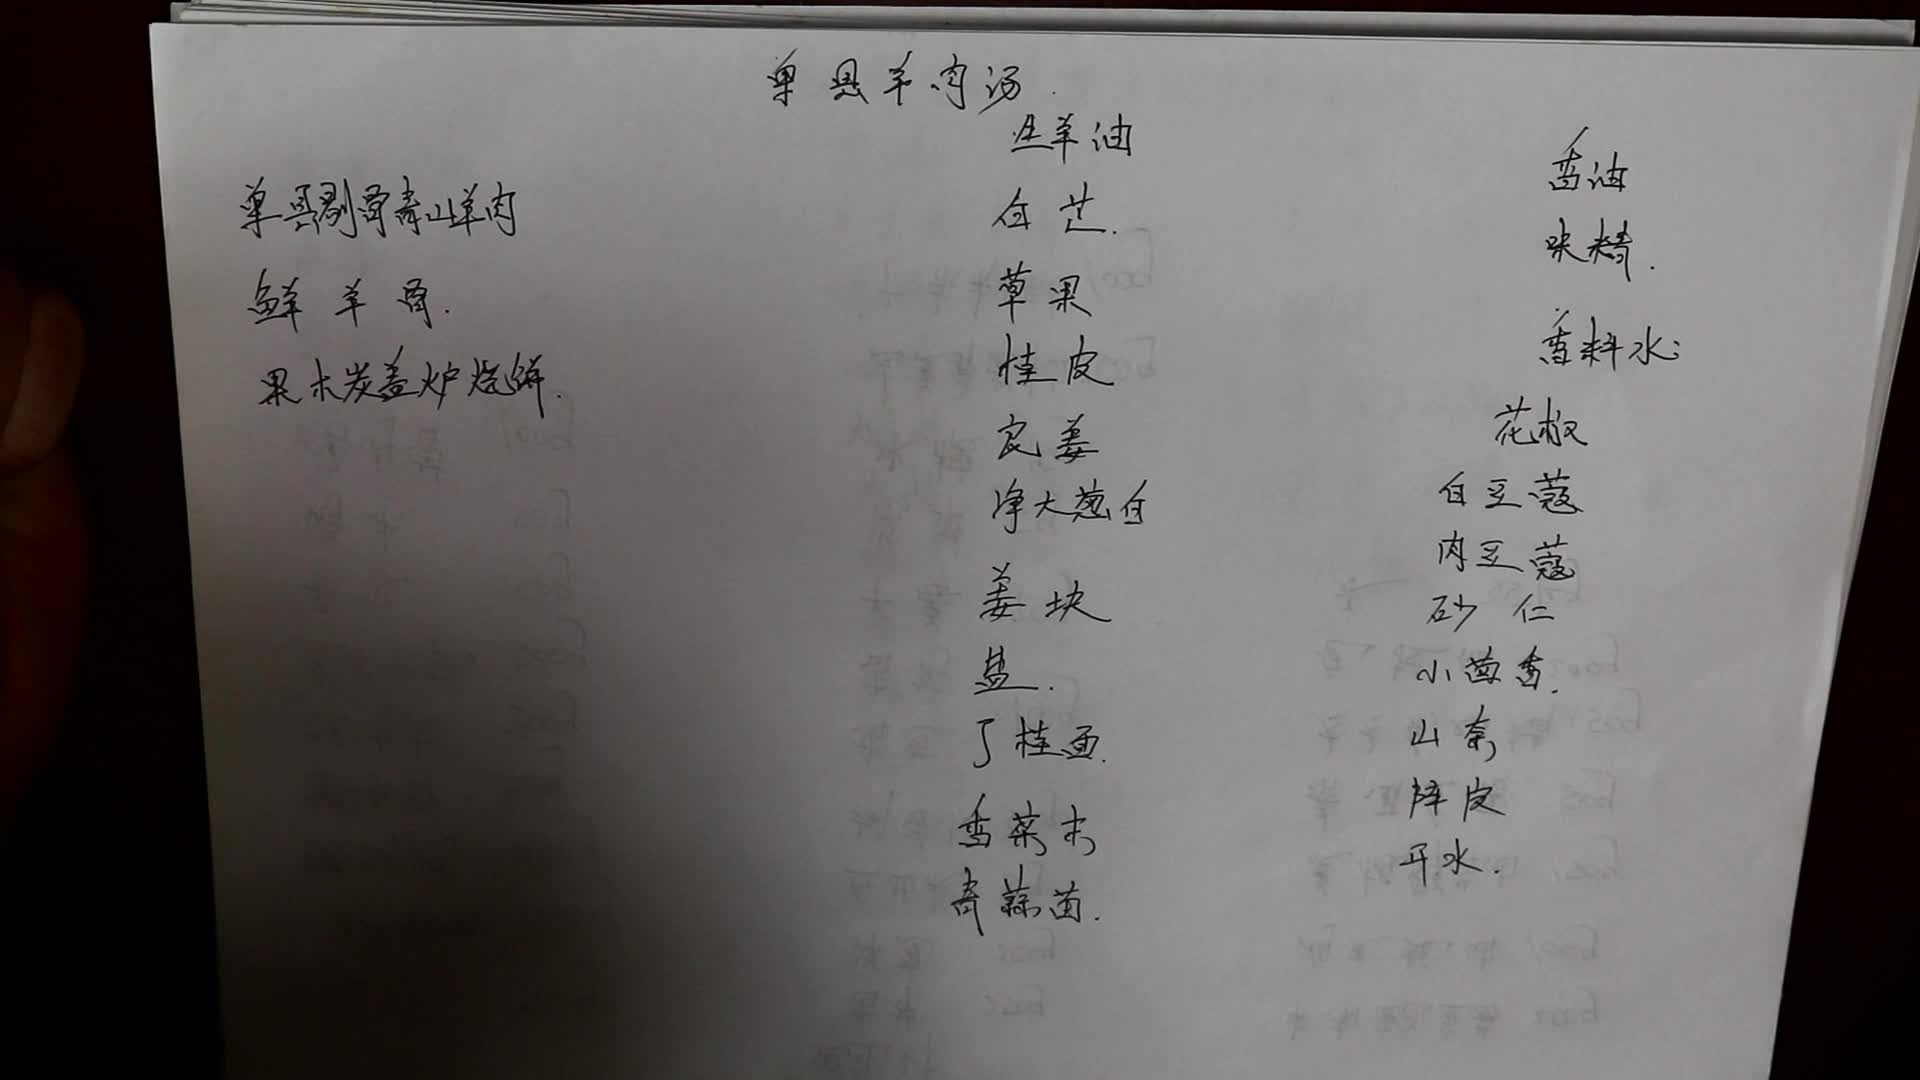 单县羊肉汤
单县剔骨青山羊肉
鲜羊骨.
果木炭盖炉烧饼.
生羊油
白芷.
草果
桂皮
良姜
净大葱白
姜块
盐.
丁桂面.
香菜末
青蒜苗.
香油
味精.
香料水:
花椒
白豆蔻
肉豆蔻
砂仁
小茴香.
山奈
陈皮
开水.